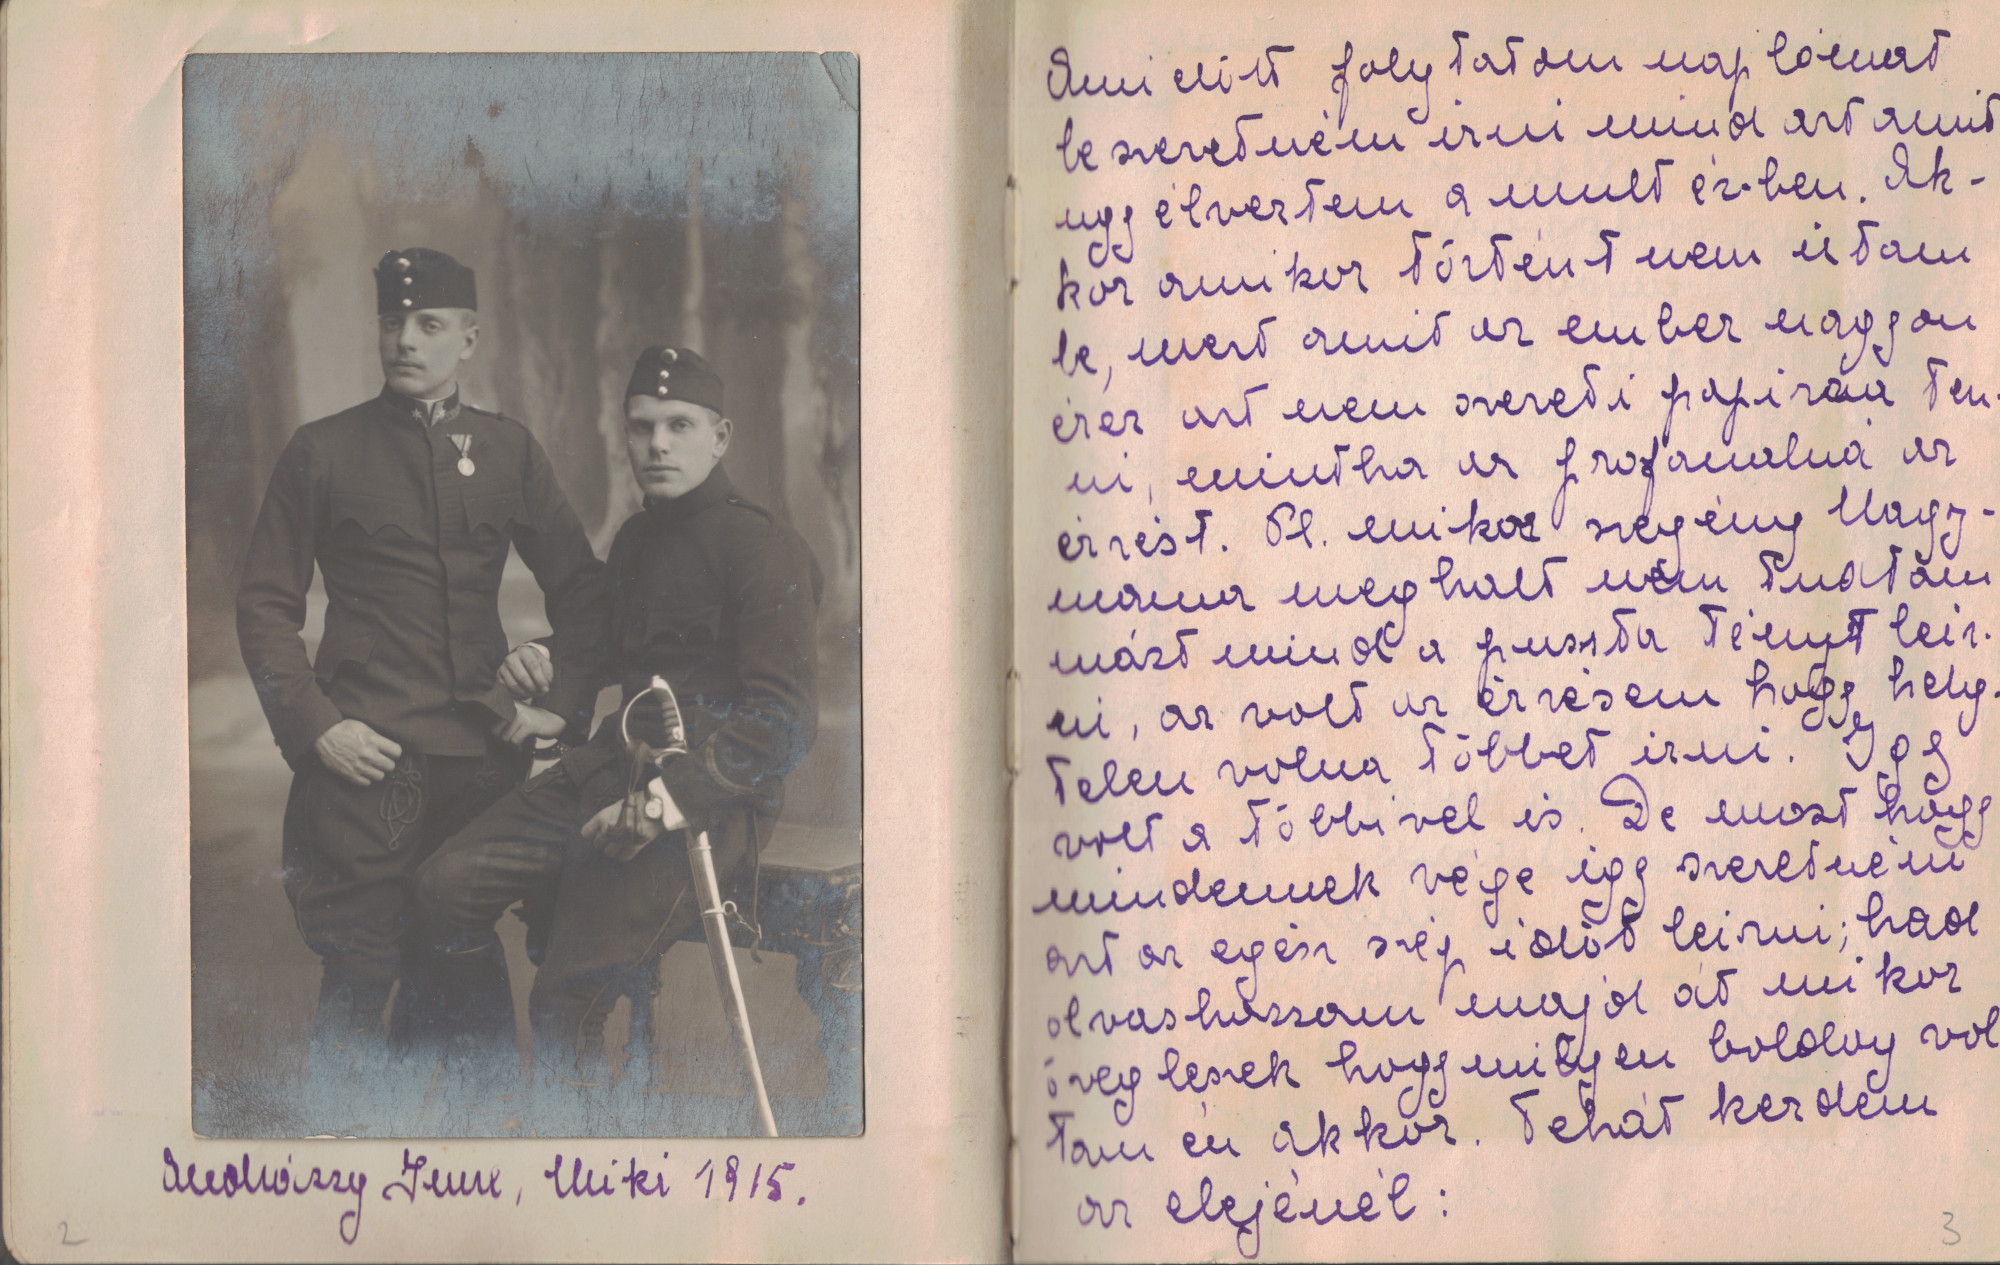 Andrássy Imre, Miki 1915.
2
Ami előtt folytatom naplómat
be szeretném írni mind azt amit
ugy élveztem a mult évben. Ak-
kor amikor történt nem írtam
be, mert amit az ember nagyon
érez azt nem szereti papírra ten-
ni, mintha az profanalná az
érzést. Pl. mikor szegény Nagy-
mama meghalt nem tudtam
mást mind a puszta tényt leir-
ni, az volt az érzésem hogy hely-
telen volna többet irni. Igy
volt a többivel is. De most hogy
mindennek vége igy szeretném
azt az egész szép időt leirni; had
olvashassam majd át mikor
öreg leszek hogy milyen boldog vol
tam én akkor. Tehát kezdem
az elejénél:
3